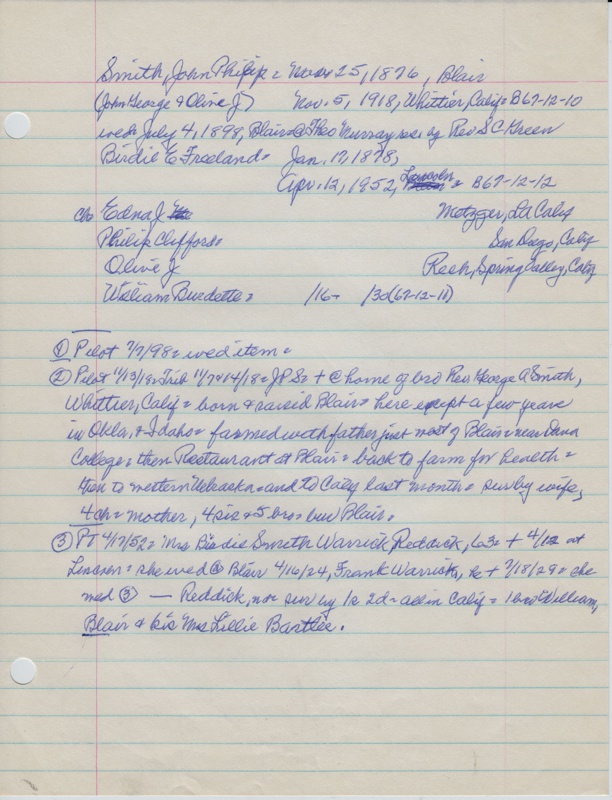 Smith, John Philip = Nov 25, 1876, Blair
(John George & Olive J) Nov. 5, 1918, Whittier, Calif = B67-12-10
wed = July 4, 1898, Blair @ Theo Murray res by Rev S C Green
Birdie E Freeland = Jan. 17, 1878,
Apr. 12, 1952, Lincoln = B67-12-12
c/o Edna J Metzger, La Calif
Philip Clifford = San Diego, Calif
Olive J Resh, Spring Valley, Calif
William Burdette = /16 + /30 (67-12-11)
① Pilot 7/7/98 = wed item =
② Pilot 11/13/18 = Trib 11/7 & 14/18 = JPS = + @ home of bro Rev George A Smith,
Whittier, Calif = born & raised Blair = here except a few years
in Okla, & Idaho = farmed with father just west of Blair = near Dana
College = then Restaurant at Blair = back to farm for health =
then to western Nebraska = and to Calif last month = sur by wife,
4 ch = mother, 4 sis & 5 bro = bur Blair =
③ PT 4/17/52 = Mrs Birdie Smith Warrick Reddick, 63 = + 4/12 at
Lincoln = she wed @ Blair 4/16/24, Frank Warrick, he + 7/18/29 = she
med ③ — Reddick, now sur by 1s 2d = all in Calif = 1 bro William,
Blair & sis Mrs Lillie Bartlee.